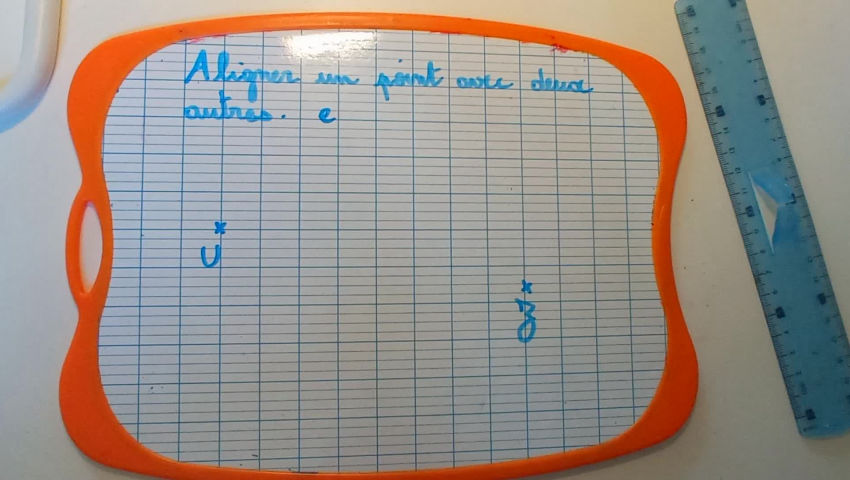 Aligner un point avec deux
autres. e
U
Z